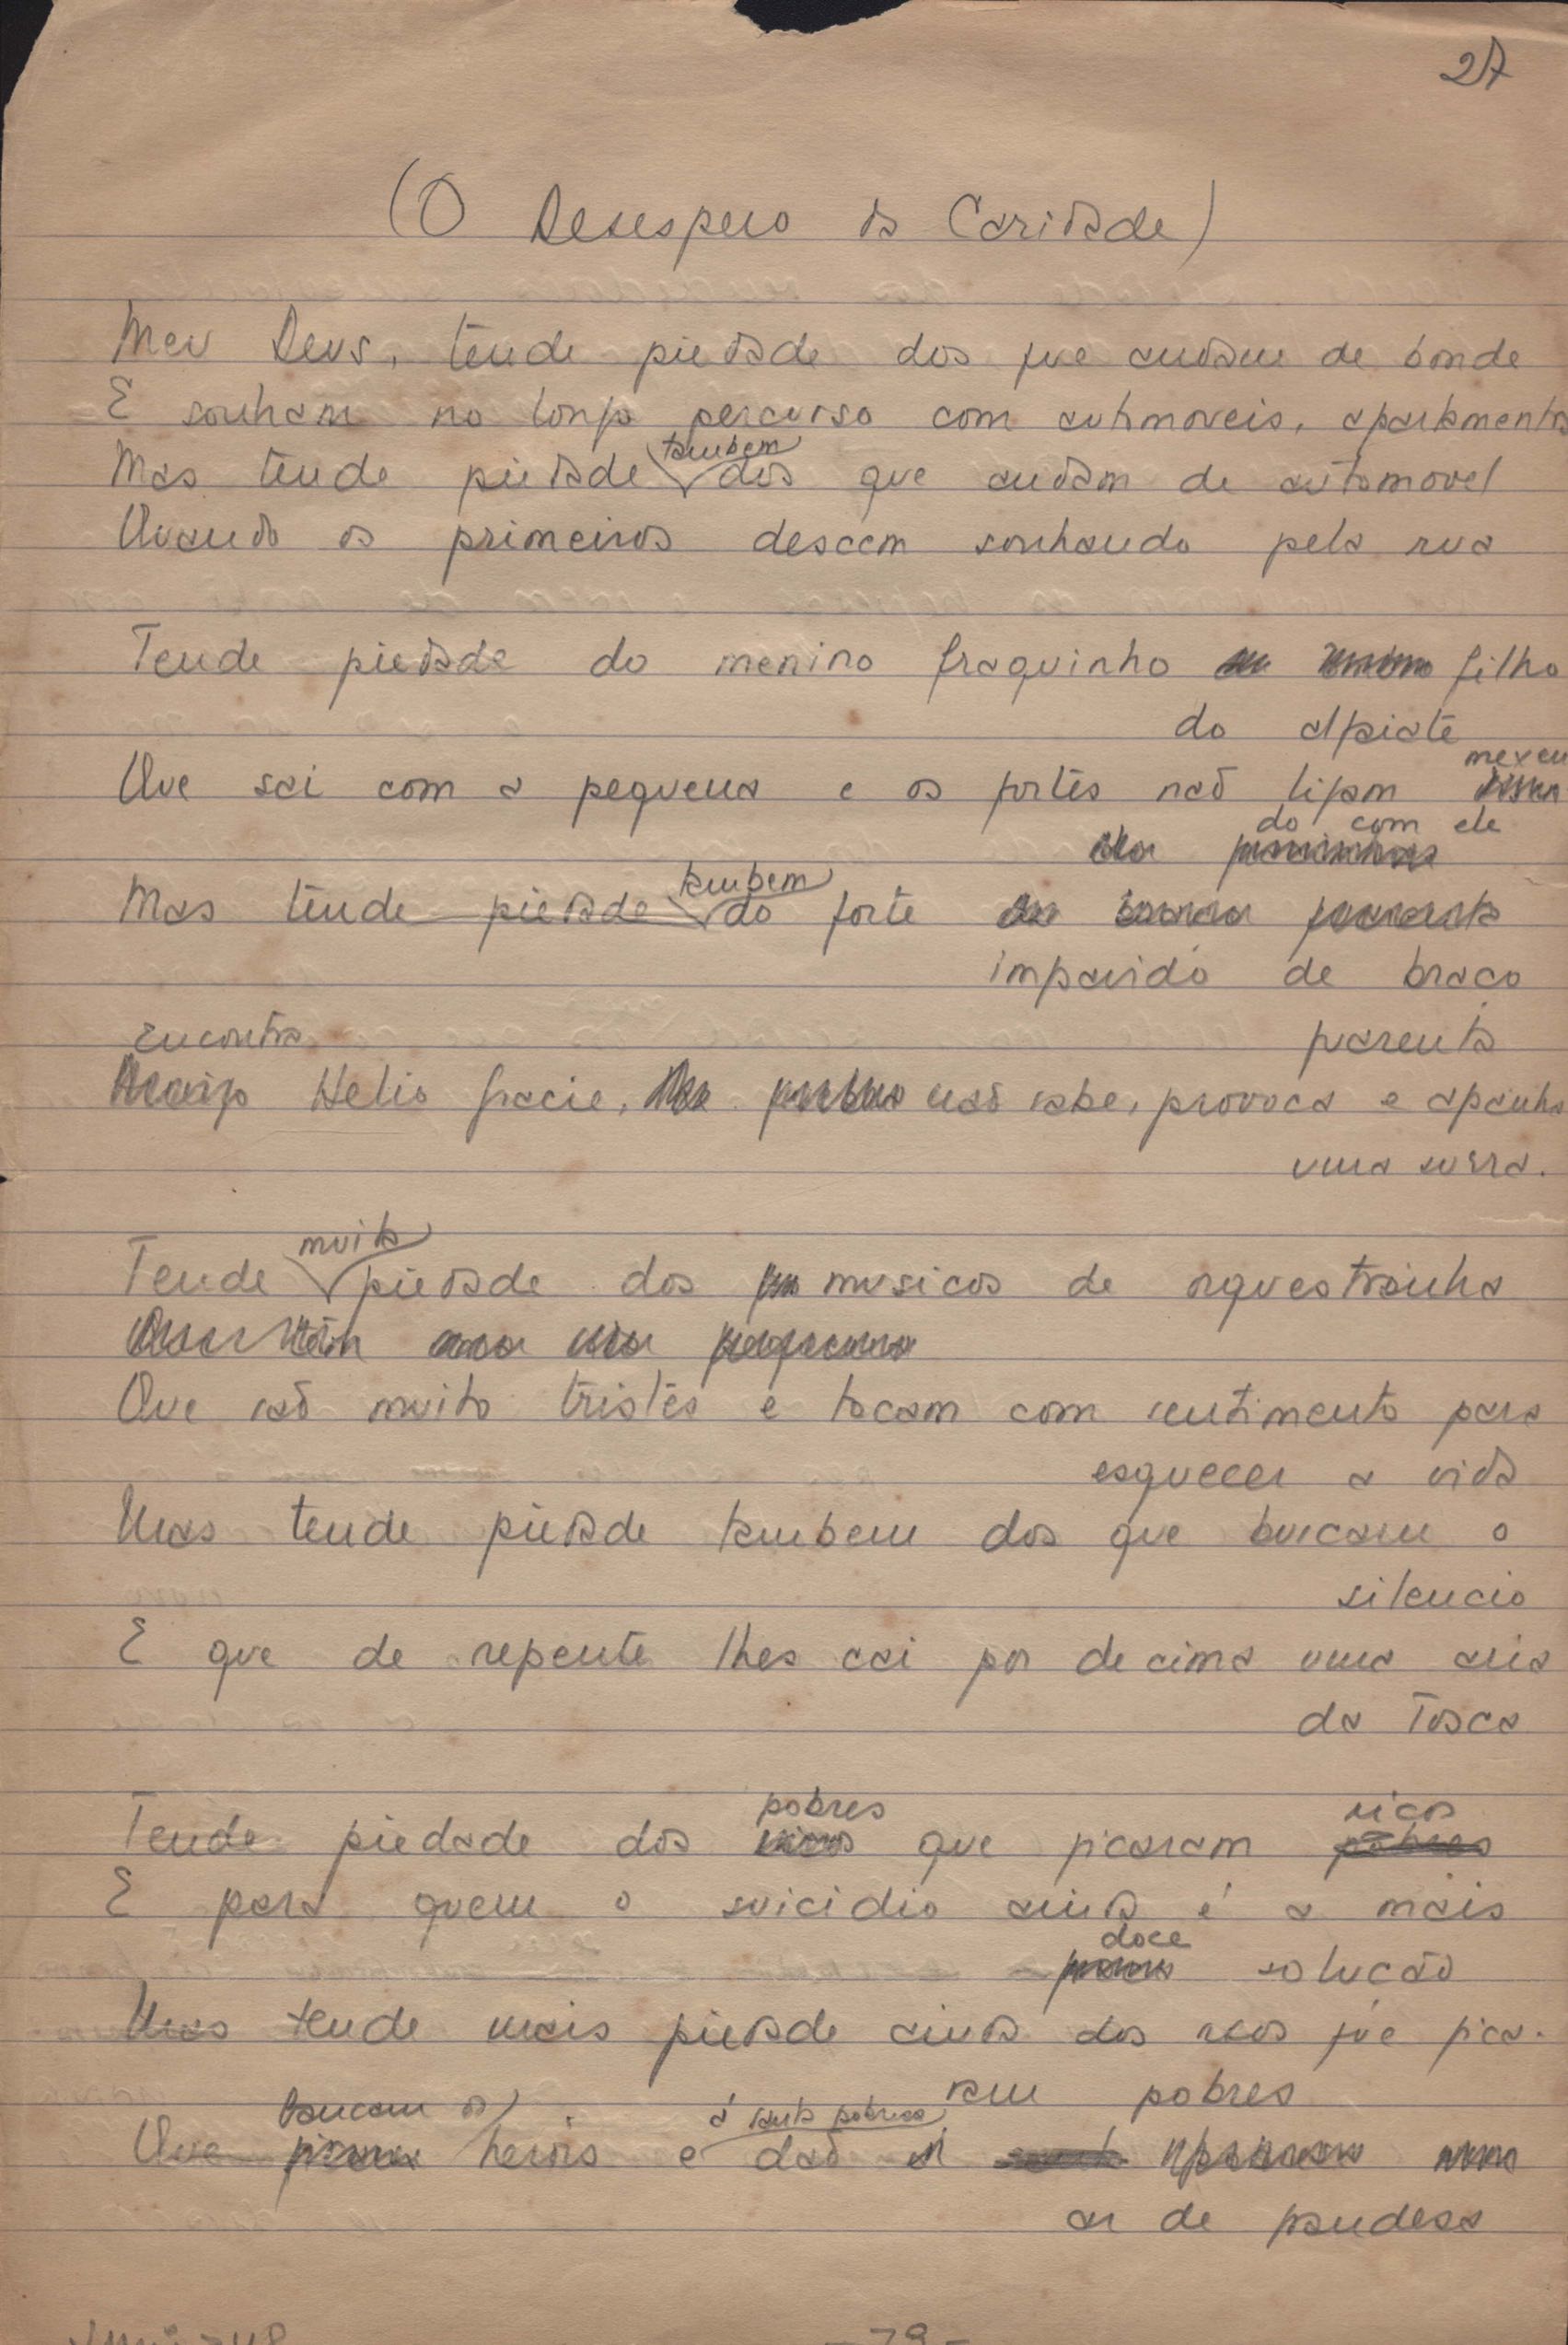 27
(O Desespero da Caridade)
Meu Deus, tende piedade dos que andam de bonde
E sonham no longo percurso com automoveis, apartamentos
tambem
Mas tende piedade dos que andam de automovel
Quando os primeiros descem sonhando pela rua
Tende piedade do menino fraquinho filho
do alfaiate
mexeu
Que sai com a pequena e os fortes não ligam
do com ele
tambem
Mas tende piedade do forte
impavido de braço
Encontra possante
Helio Gracie, não sabe, provoca e apanha
uma surra.
muita
Tende piedade dos musicos de orquestrinha
Que são muito tristes e tocam com sentimento para
esquecer a vida
Mas tende piedade tambem dos que buscam o
silencio
E que de repente lhes cai por de cima uma aria
da Tosca
pobres ricos
Tende piedade dos que ficaram pobres
E para quem o suicidio ainda é a mais
doce
solução
Mas tende mais piedade ainda dos ricos que fica-
ram pobres
bancam os á santa pobreza
Que herois e dão um
ar de grandesa
- 79 -